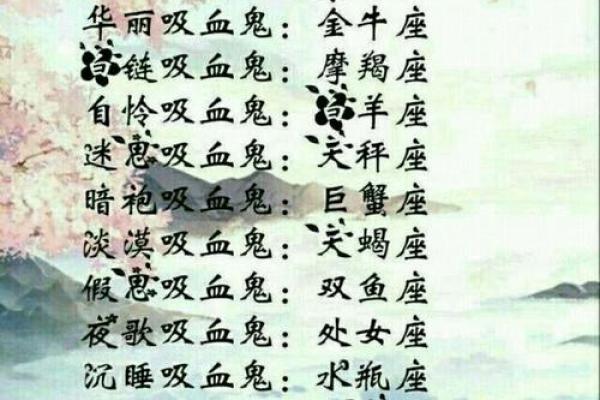 华丽吸血鬼：金牛座
白链吸血鬼：摩羯座
自怜吸血鬼：白羊座
迷思吸血鬼：天秤座
暗袍吸血鬼：巨蟹座
淡漠吸血鬼：天蝎座
假思吸血鬼：双鱼座
夜歌吸血鬼：处女座
沉睡吸血鬼：水瓶座